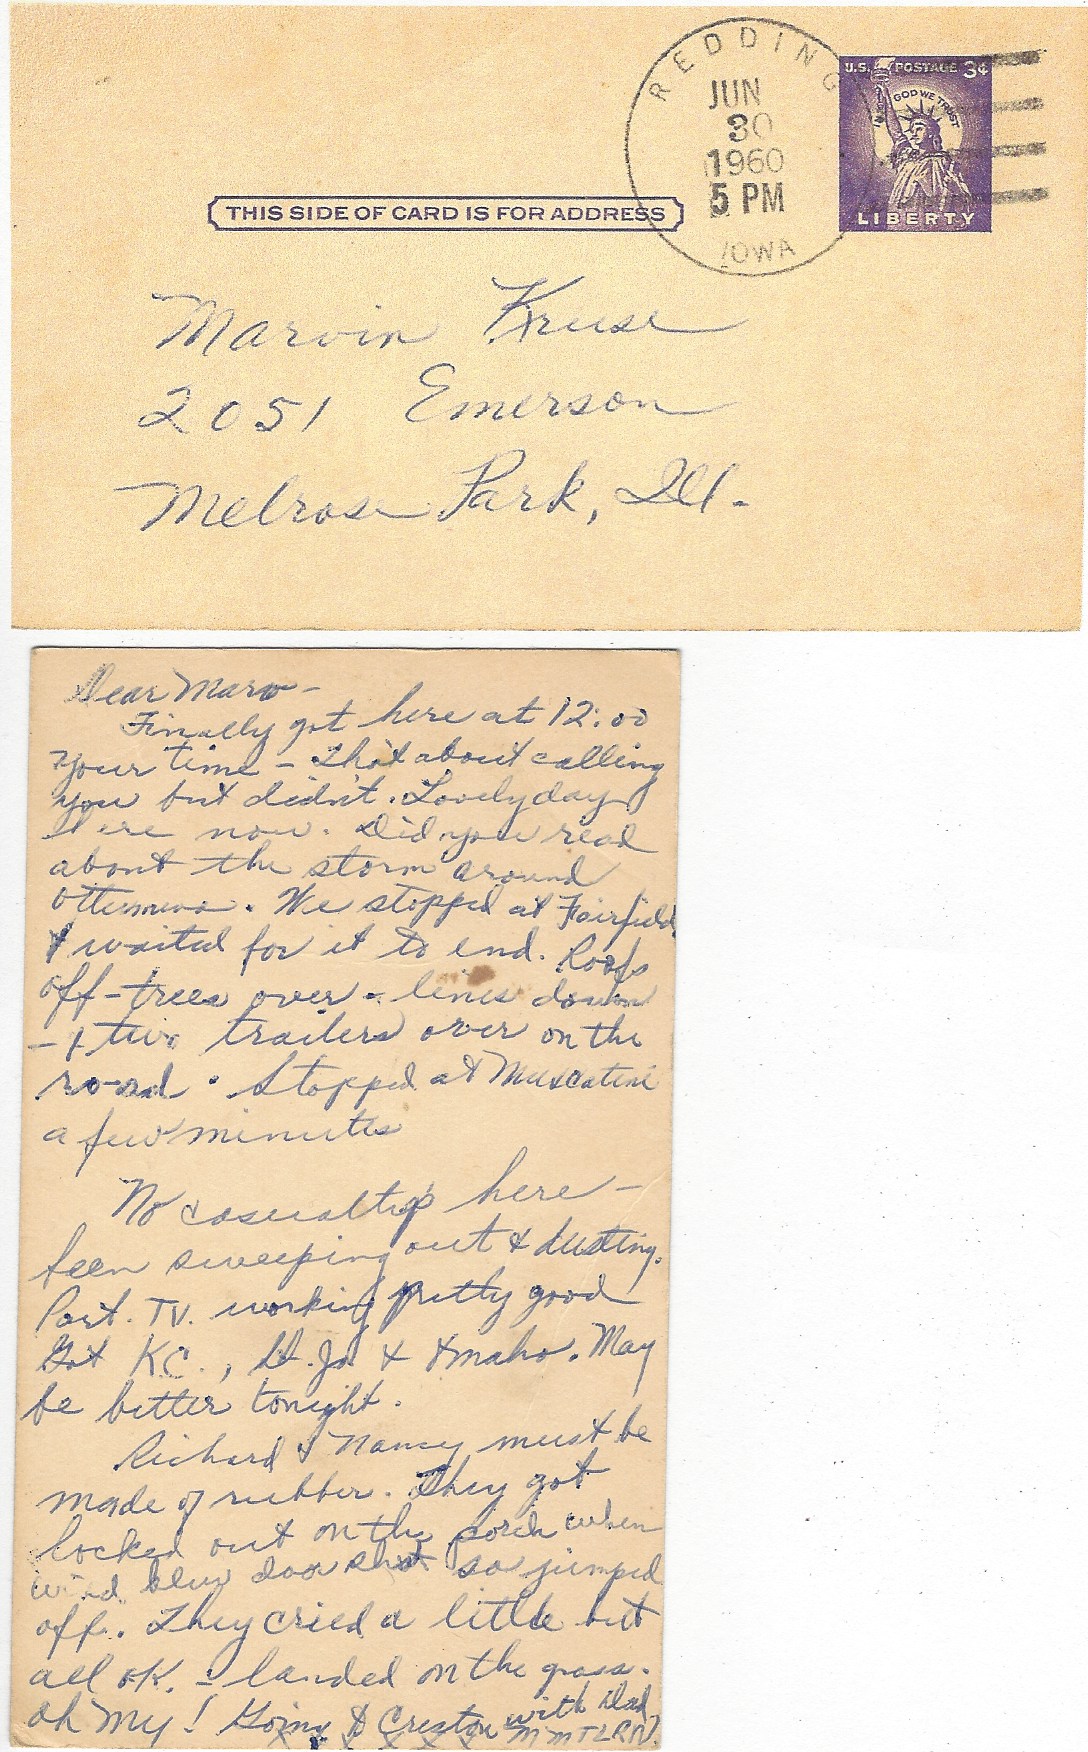 REDDING
JUN
30
1960
5 PM
IOWA
U.S. POSTAGE 3¢
IN GOD WE TRUST
LIBERTY
THIS SIDE OF CARD IS FOR ADDRESS
Marvin Kruse
2051 Emerson
Melrose Park, Ill.
Dear Marv -
Finally got here at 12:00
your time - Thot about calling
you but didn't. Lovely day
here now. Did you read
about the storm around
Ottumwa. We stopped at Fairfield
& waited for it to end. Roofs
off - trees over - lines down
- & two trailers over on the
road. Stopped at Muscatine
a few minutes
No here -
been sweeping out & dusting.
Port. TV. working pretty good
Got KC., St. Jo & Omaha. May
be better tonight.
Richard & Nancy must be
made of rubber. They got
locked out on the porch when
wind blew door shut so jumped
off. They cried a little but
all OK. - landed on the grass.
Oh My! Going to Creston with Dad
X X X X X MMTLRN